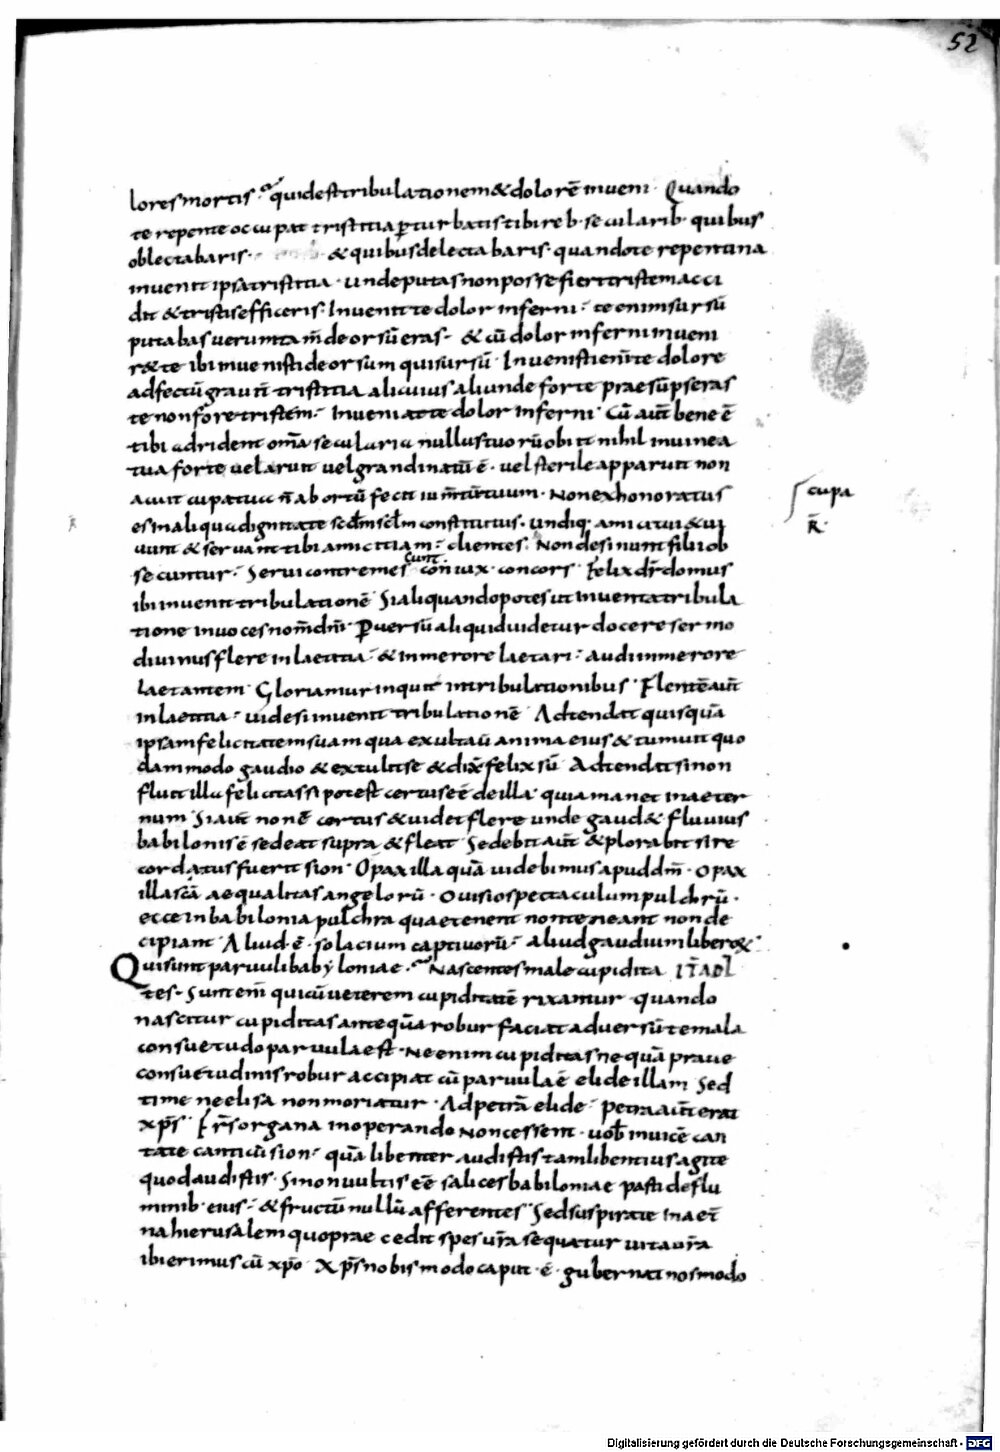 52
lores mortis · quid est tribulationem & dolorē inveni · Quando
te repente occupat tristitia p̱turbatis tibi reb· secularib· quibus
oblectabaris · & quibus delectabaris · quando te repentina
invenit ipsa tristitia · unde putas non posse fieri tristem acci
dit & tristis efficeris · Invenit te dolor inferni · te enim sursū
putabas verumtam̄ deorsū eras · & cū dolor inferni inveni
r& te ibi invenisti deorsum qui sursū · Invenisti enī te dolore
adfectū gravi tristitia alicuius aliunde forte praesūpseras
te non fore tristem · Inveniat te dolor inferni · Cū aut̄ bene ē
tibi adrident om̄a secularia nullus tuorū obiit nihil in vinea
tua forte vel aruit vel grandinatū ē · vel sterile apparuit non
acuit cupa tua n̄ abortū fecit iumt̄um tuum · Non exhonoratus
es in aliqua dignitate scd̄m scl̄m constitutus · undiq· amici tui & vi
vunt & servant tibi amicitiam · clientes · Non desinunt filii ob
secuntur · Servi contremescunt · coniux · concors · Felix dr̄ domus
cupa
R̄
ibi invenit tribulationē Si aliquando potes ut inventa tribula
tione invoces nom̄ dn̄i · P̱versū aliquid videtur docere sermo
divinus flere in laetitia · & in merore laetari · audi in merore
laetantem Gloriamur inquit in tribulationibus · Flentē aut̄
in laetitia · vide si invenit tribulationē Adtendat quisquā
ipsam felicitatem suam qua exultavit anima eius & tumuit quo
dammodo gaudio & extulit se & dix̄ felix sū Adtendat si non
fluit illa felicitas si potest certus eē de illa quia manet in aeter
num · Si aut̄ non ē certus & videt flere unde gaud& fluvius
babilonis ē sedeat supra & fleat Sedebit aut̄ & plorabit si re
cordatus fuerit sion · O pax illa quā videbimus apud dm̄ · O pax
illa scā aequalitas angelorū · O visio spectaculum pulchrū ·
ecce in babilonia pulchra quae tenent non teneant non de
cipiant Aliud ē solacium captivorū · aliud gaudium liberor̄
Qui sunt parvuli babyloniae · Nascentes male cupidita
tes · Sunt enī qui cū veterem cupiditatē rixantur quando
nascitur cupiditas antequā robur faciat adversū te mala
consuetudo parvula est · Ne enim cupiditas nequā prave
consuetudinis robur accipiat cū parvula ē elide illam Sed
time ne elisa non moriatur · Ad petrā elide · petra aut̄ erat
xp̄s · Fr̄s organa in operando non cessent · vob̄ invicē can
tate canticū sion · quā libenter audistis tam libentius agite
quod audistis · Si non vultis eē salices babiloniae pasti de flu
minib· eius · & fructū nullū afferentes · Sed suspirate in aet̄
na hierusalem quo praecedit spes vr̄a sequatur vita vr̄a
ibi erimus cū xp̄o · Xp̄s nobis modo caput ē · gubernat nos modo
Digitalisierung gefördert durch die Deutsche Forschungsgemeinschaft - DFG